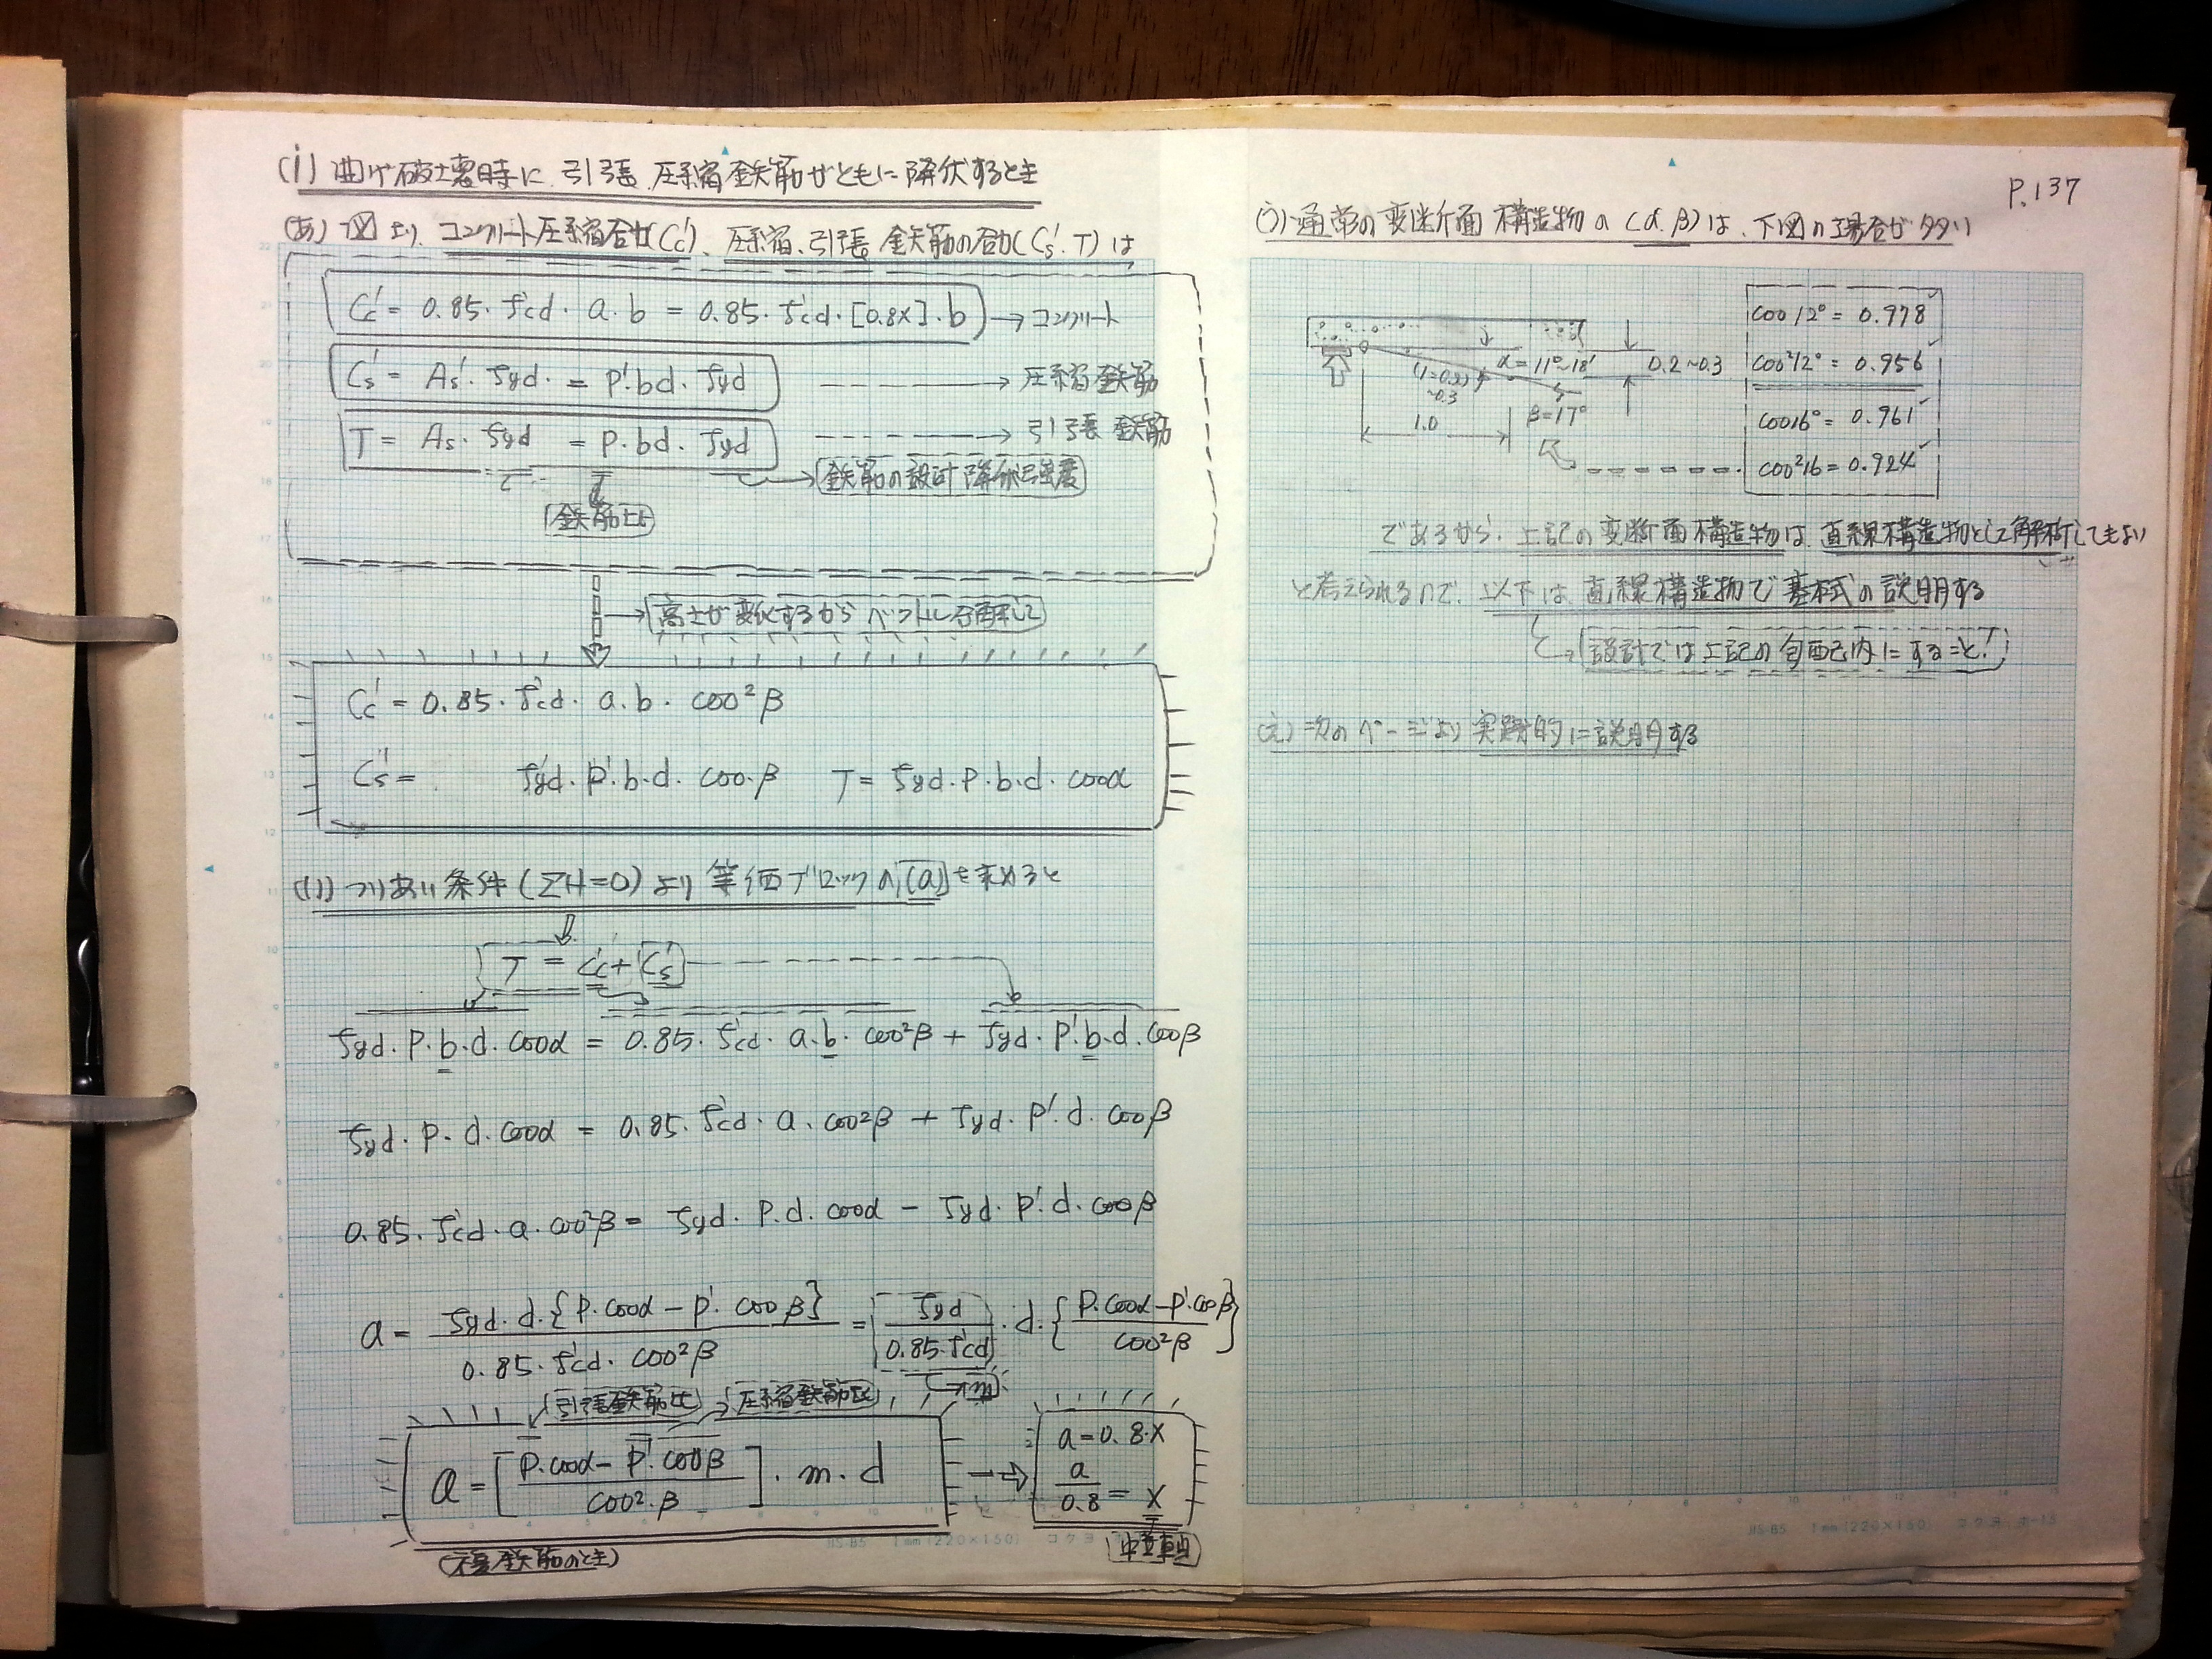 (i) 曲げ破壊時に 引張、圧縮鉄筋がともに降伏するとき
(あ) 下図より、コンクリート圧縮合力(C'c)、圧縮、引張 鉄筋の合力(C's.T) は
C'c = 0.85・f'cd・a・b = 0.85・f'cd・[0.8x]・b → コンクリート
C's = As'・fyd・= P'・bd・fyd → 圧縮鉄筋
T = As・fyd = P・bd・fyd → 引張鉄筋
鉄筋の設計降伏強度
鉄筋比
高さが変化するから ベクトル分解して
C'c = 0.85・f'cd・a・b・cos²β
C's = f'yd・P'・b・d・cos・β T = fyd・P・b・d・cosα
(い) つりあい条件 (ΣH=0) より 等価ブロックの(a)を求めると
T = C'c + C's
fyd・P・b・d・cosα = 0.85・f'cd・a・b・cos²β + fyd・P'・b・d・cosβ
fyd・P・d・cosα = 0.85・f'cd・a・cos²β + fyd・P'・d・cosβ
0.85・f'cd・a・cos²β = fyd・P・d・cosα − fyd・P'・d・cosβ
a = fyd・d・{P・cosα − P'・cosβ} / 0.85・f'cd・cos²β = fyd / 0.85・f'cd ・d・{P・cosα−P'・cosβ / cos²β}
引張鉄筋比 圧縮鉄筋比 → m
a = [P・cosα − P'・cosβ / cos²・β]・m・d
a = 0.8・x
a / 0.8 = x
(複鉄筋のとき)
中立軸
JIS-B5 1mm(220×150) コクヨ
P.137
(う) 通常の変断面構造物の(α.β)は、下図の場合が多い
α=11°~18' 0.2~0.3
(1=0.2)
~0.3
β=17°
1.0
cos12° = 0.978
cos²12° = 0.956
cos16° = 0.961
cos²16 = 0.924
であるから、上記の変断面構造物は、直線構造物として解析してもよい
と考えられるので、以下は、直線構造物で基本式の説明する
設計では上記の勾配内にすること!
(え) 次のページより 実践的に説明する
JIS-B5 1mm(220×150) コクヨ ホ-15